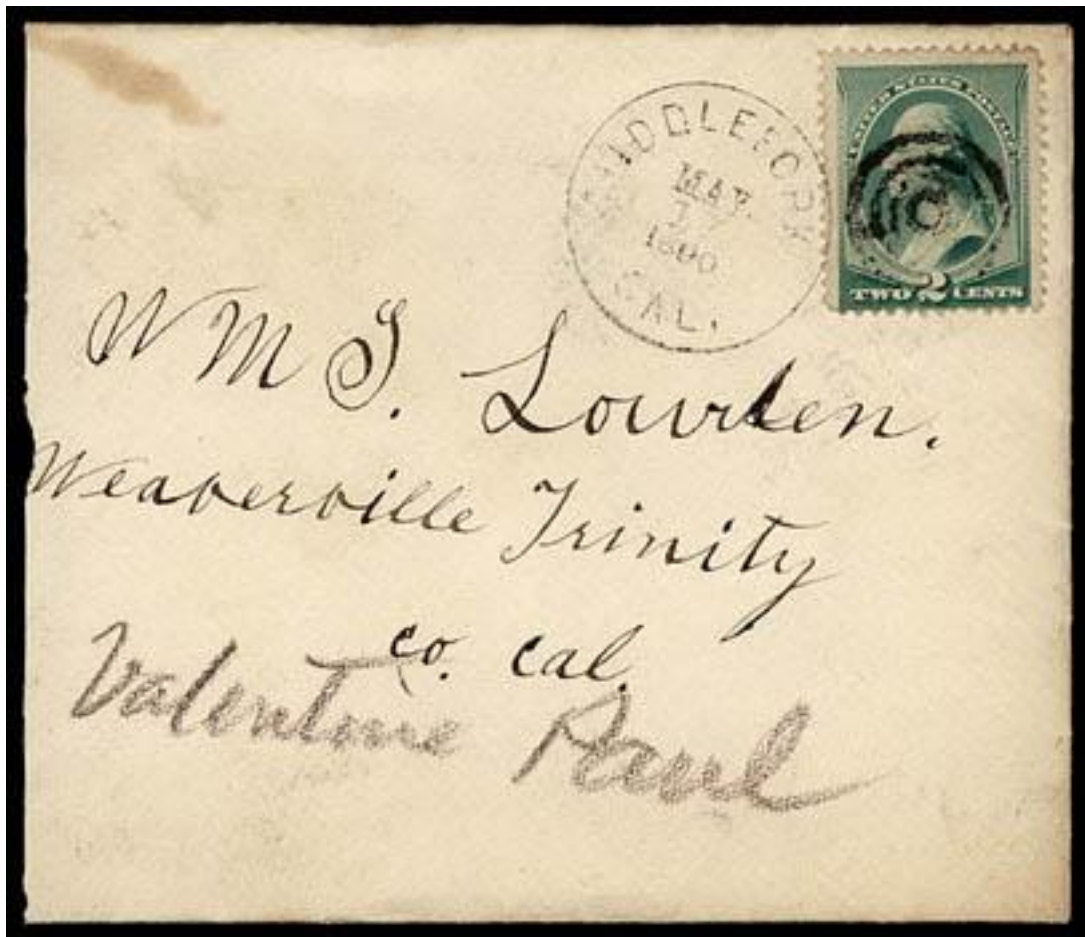 CAL.
UNITED STATES POSTAGE
TWO 2 CENTS
WM S. Lowden.
Weaverville Trinity
co. Cal.
Valentine Paul